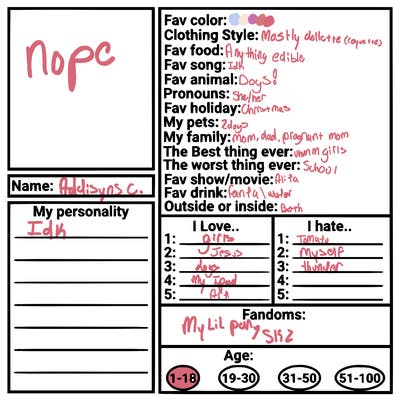 nope
Name: Addisyns C.
My personality
Idk
Fav color:
Clothing Style: Mostly dollette (coquette)
Fav food: Anything edible
Fav song: Idk
Fav animal: Dogs!
Pronouns: She/her
Fav holiday: Christmas
My pets: 2dogs
My family: mom, dad, pregnant mom
The Best thing ever: girls
The worst thing ever: School
Fav show/movie: Alita
Fav drink: Fanta\water
Outside or inside: Both
I Love..
1: girls
2: Jesus
3: dogs
4: My Ipad
5: Art
I hate..
1: Tomato
2: Myself
3: thunder
4:
5:
Fandoms:
My Lil pony
SKZ
Age:
1-18 19-30 31-50 51-100